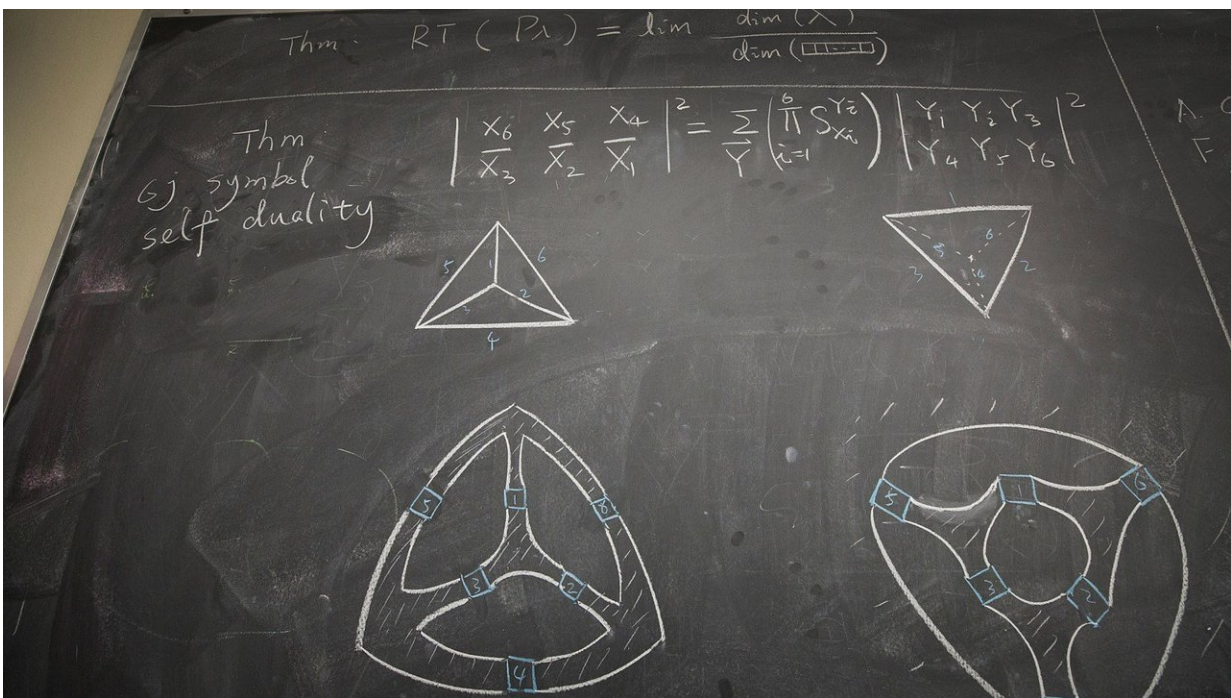 Thm: RT ( Pλ ) = lim dim(λ) / dim(□□···□)
Thm
6j symbol
self duality
| X₆/X₃ X₅/X₂ X₄/X₁ |² = Σ_Y⃗ ( ∏_{i=1}^{6} S_{Xi}^{Yi} ) | Y₁ Y₂ Y₃ / Y₄ Y₅ Y₆ |²
A.
F
5 1 6
3 2
4
1
5 6
3 4 2
5 1 6
3 2
4
5 1 6
3 2